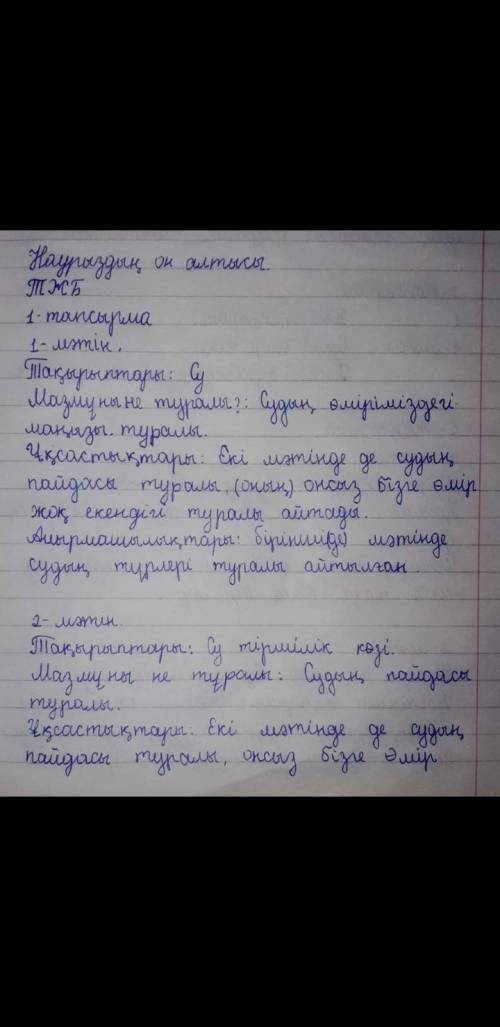 Наурыздың он алтысы.
ТЖБ
1-тапсырма
1-мәтін.
Тақырыптары: Су
Мазмұны не туралы?: Судың өміріміздегі
маңызы туралы.
Ұқсастықтары: Екі мәтінде де судың
пайдасы туралы, (оның) онсыз бізге өмір
жоқ екендігі туралы айтады.
Айырмашылықтары: бірінші(де) мәтінде
судың түрлері туралы айтылған.
2-мәтін.
Тақырыптары: Су тіршілік көзі.
Мазмұны не туралы: Судың пайдасы
туралы.
Ұқсастықтары: Екі мәтінде де судың
пайдасы туралы, онсыз бізге Өмір